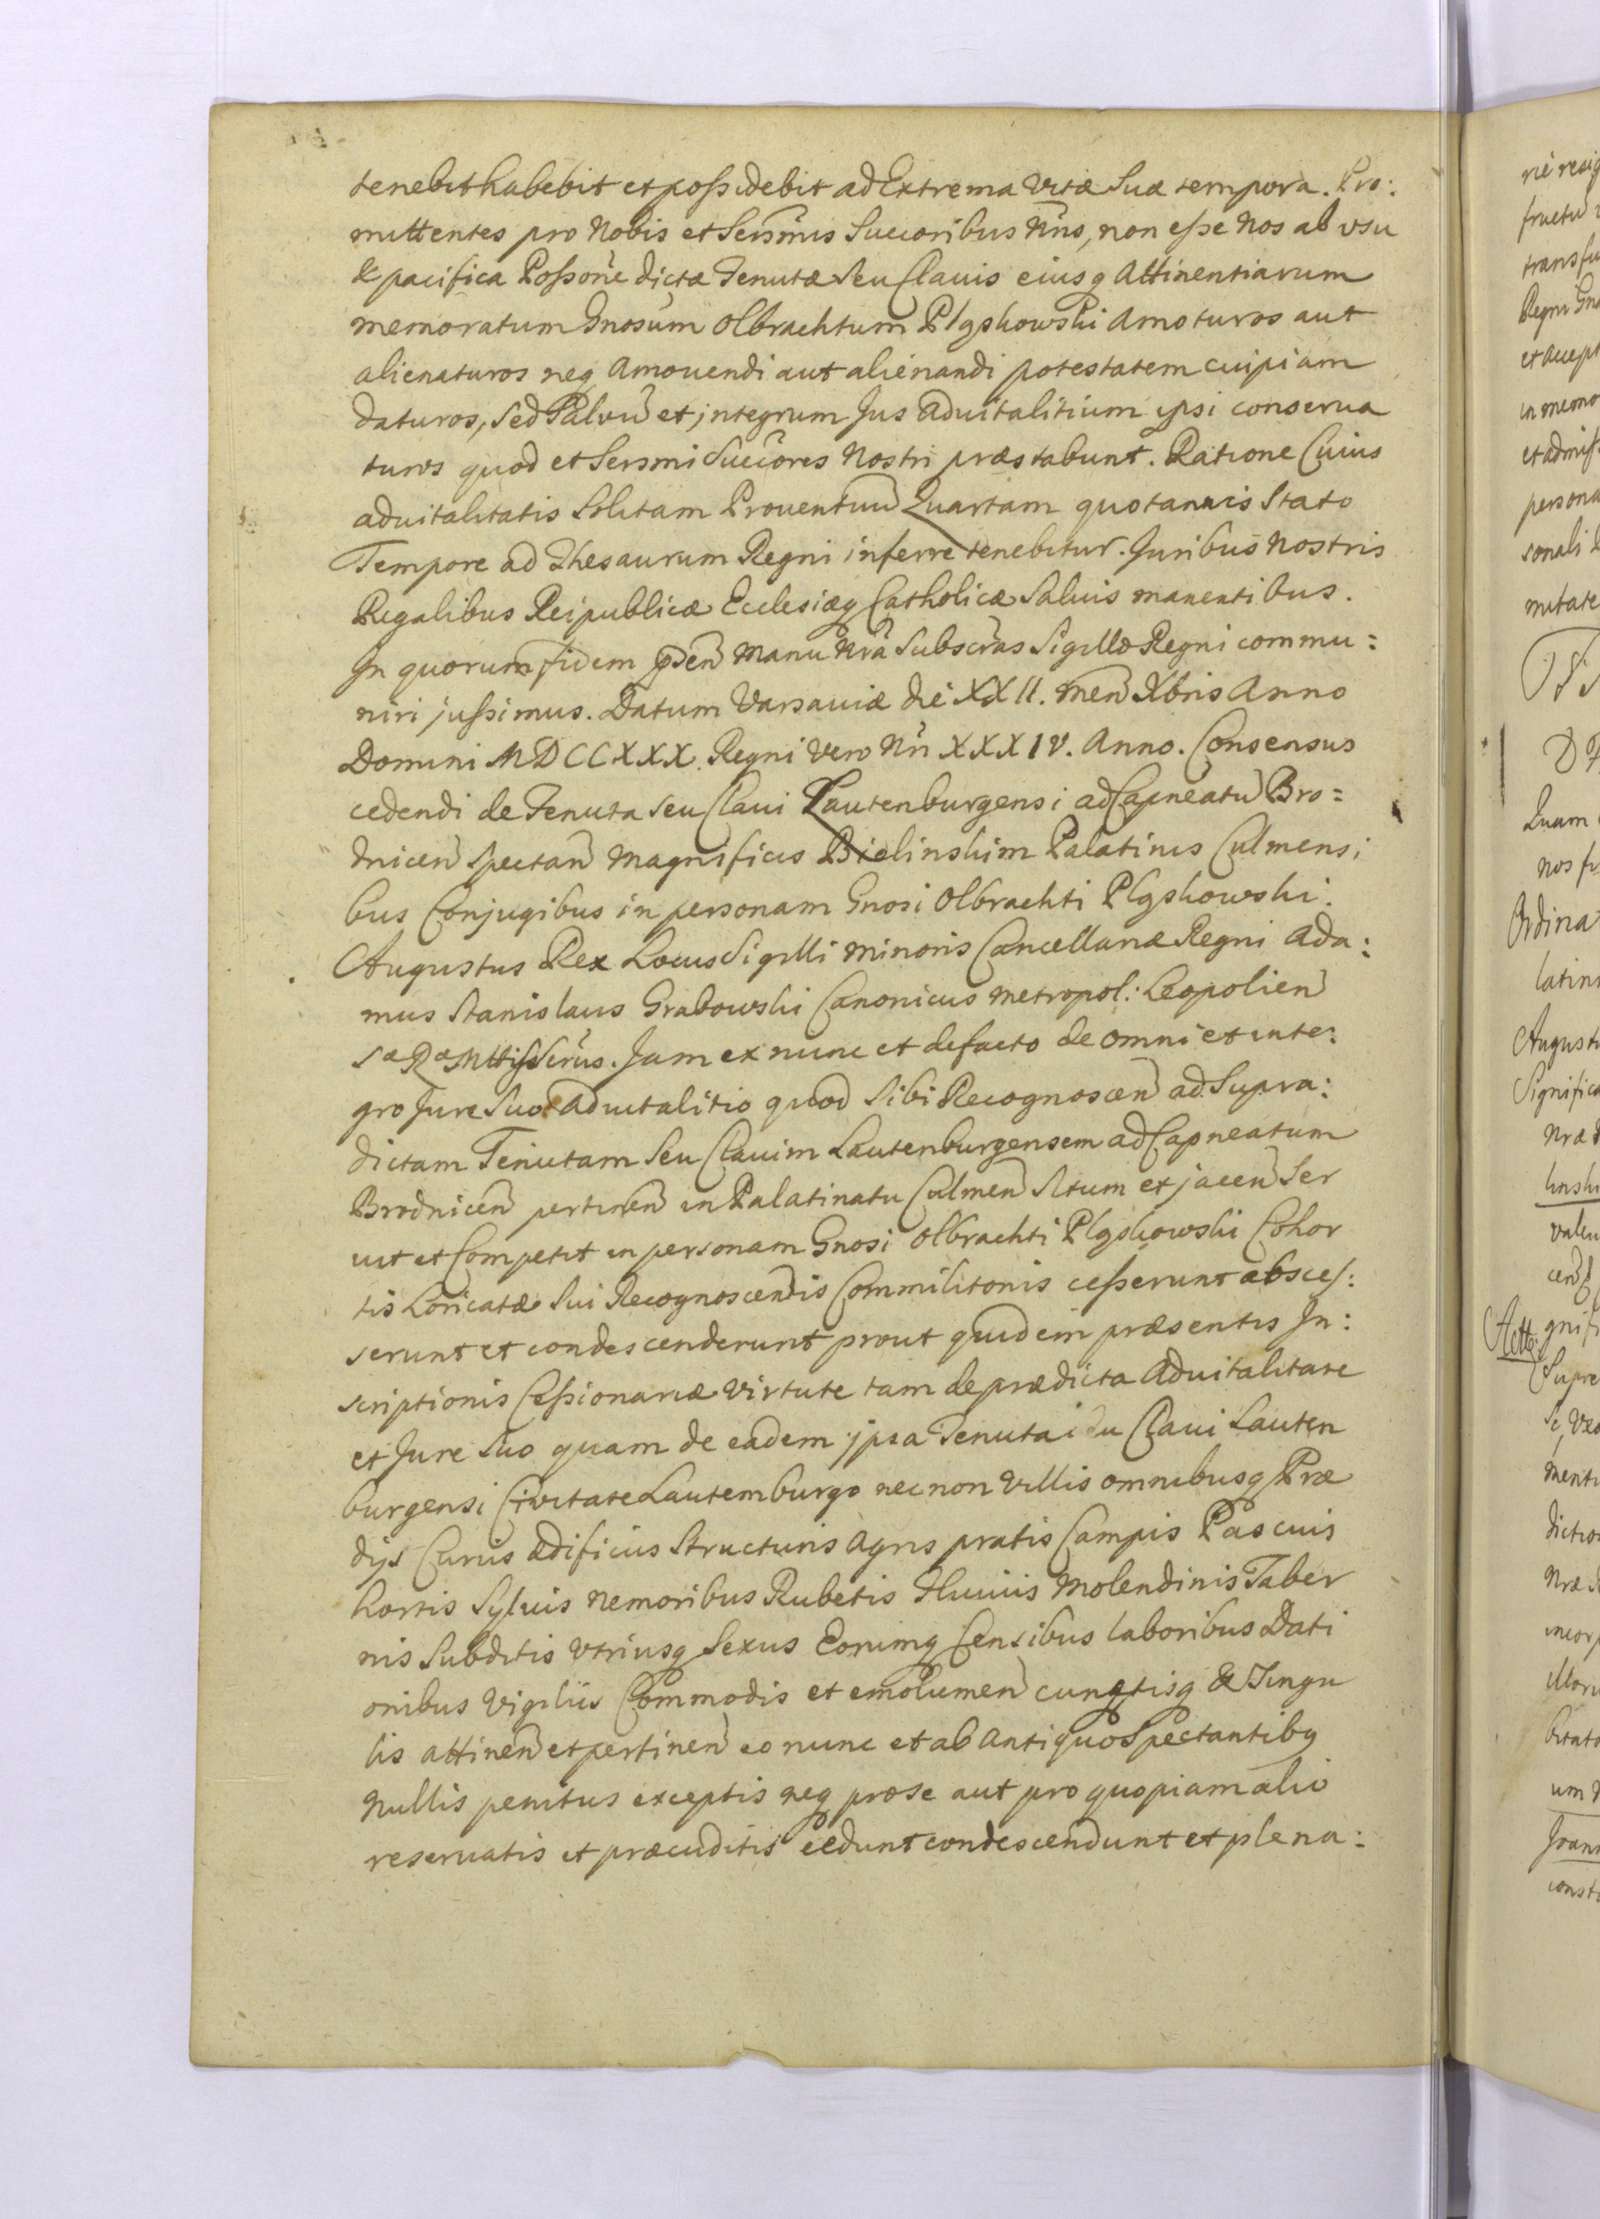 tenebit habebit et possidebit ad Extrema Vitæ Suæ tempora. Pro:
mittentes pro Nobis et Sersmis Succoribus Nris, non esse Nos ab usu
& pacifica Possone dictæ Tenutæ seu Clavis eiusq Attinentiarum
memoratum Gnosum Olbrachtum Plqskowski Amoturos aut
alienaturos neq Amovendi aut alienandi potestatem cuipiam
daturos, sed Salvu et integrum Jus advitalitium ipsi conserva
turos quod et Sersmi Succores Nostri præstabunt. Ratione Cuius
advitalitatis Solitam Proventuu Quartam quotannis Stato
Tempore ad Thesaurum Regni inferre tenebitur. Juribus Nostris
Regalibus Reipublicæ Ecclesiæq Catholicæ Salvis manentibus.
In quorum fidem pden Manu Nra Subscras Sigillo Regni commu:
niri jussimus. Datum Varsaviæ die XXII. men Xbris Anno
Domini MDCCXXX. Regni Vero Nri XXXIV. Anno. Consensus
cedendi de Tenuta seu Clavi Lautenburgensi ad Capneatu Bro=
dnicen spectan Magnificis Bielinskim Palatinis Culmensi
bus Conjugibus in personam Gnosi Olbrachti Plqskowski.
Augustus Rex Locus Sigilli Minoris Cancellariæ Regni Ada:
mus Stanislaus Grabowski Canonicus Metropol: Leopolien
Sæ Ræ Mttis Secrius. Jam ex nunc et defacto de omni et inte:
gro Jure Suo Advitalitio quod Sibi Recognoscen ad Supra:
dictam Tenutam Seu Clavim Lautenburgensem ad Capneatum
Brodnicen pertinen in Palatinatu Culmen Situm et jacen Ser
vit et Competit in personam Gnosi Olbrachti Plqskowski Cohor
tis Loricatæ Sui Recognoscendis Commilitonis cesserunt absces:
serunt et condescenderunt prout quidem præsentis In:
scriptionis Cessionariæ Virtute tam de prædicta Advitalitate
et Jure Suo quam de eadem ipsa Tenuta seu Clavi Lauten
burgensi Civitate Lautemburgo nec non Villis omnibusq Præ
dijs Curiis ædificiis Structuris Agris pratis Campis Pascuis
hortis Sylvis Nemoribus Rubetis Fluviis Molendinis Taber
nis Subditis Utriusq Sexus Eorumq Censibus laboribus Dati
onibus Vigiliis Commodis et emolumen cunctisq & Singu
lis attinen et pertinen eo nunc et ab Antiquo Spectantibq
Nullis penitus exceptis neq pro se aut pro quopiam alio
reservatis et præcuditis cedunt condescendunt et plena: